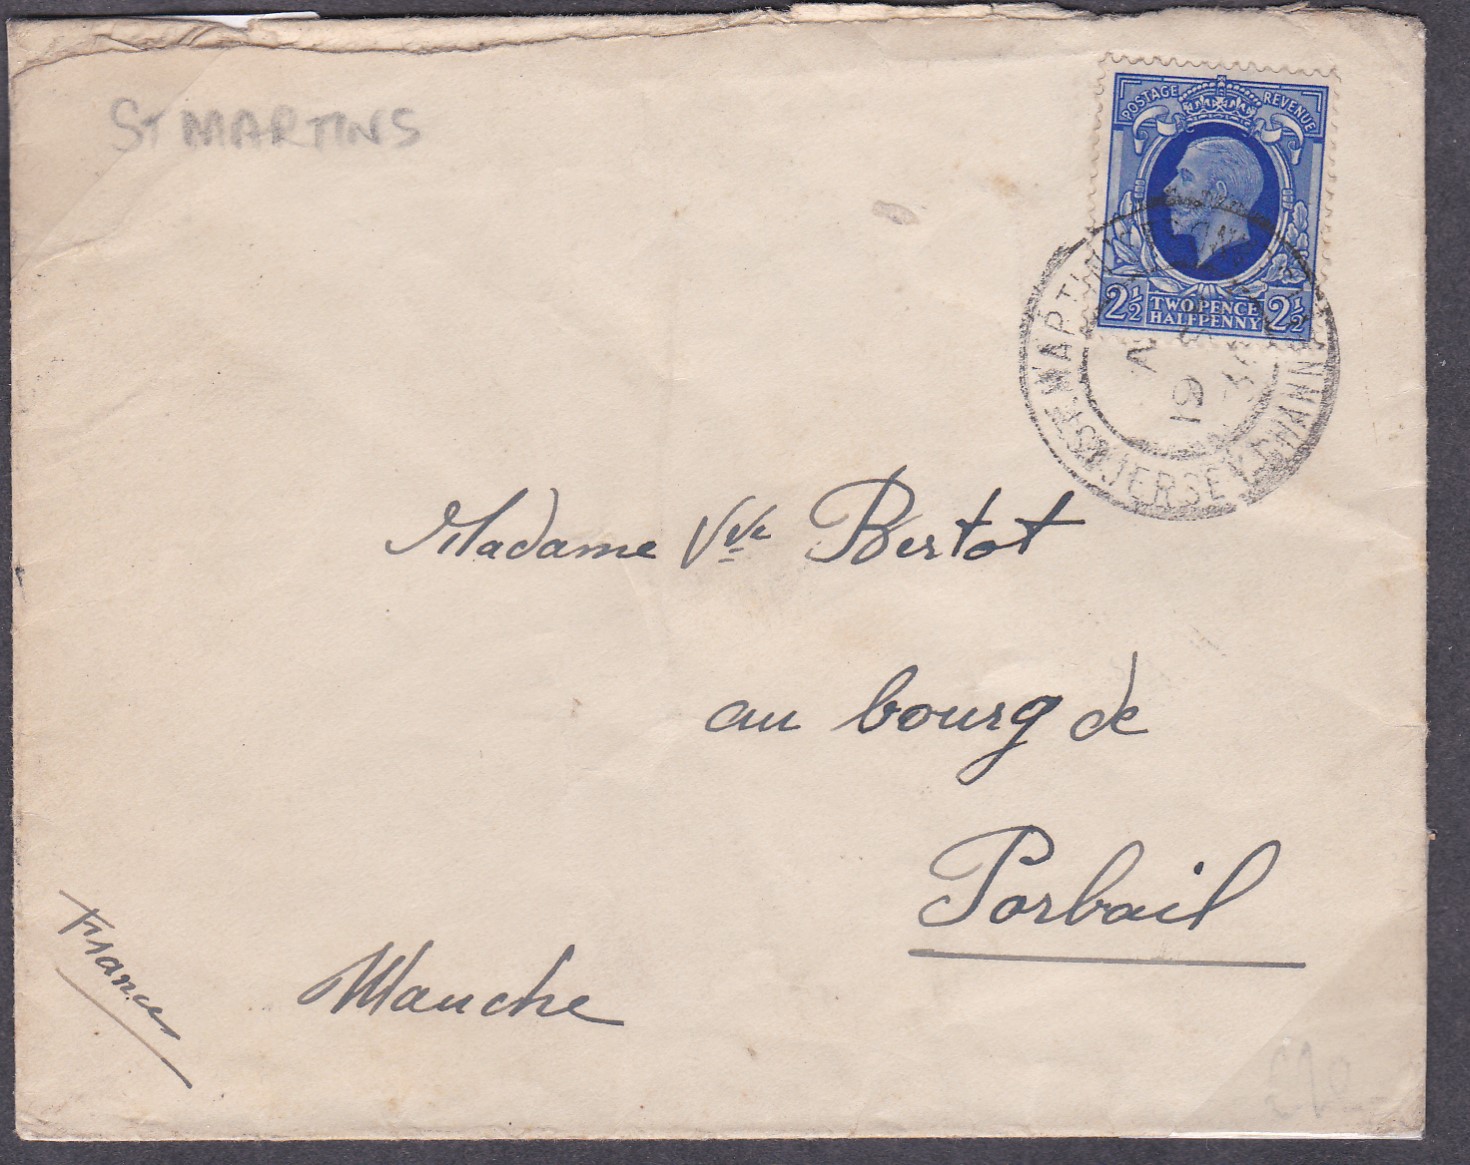 St MARTINS
POSTAGE REVENUE
2½ TWO PENCE HALFPENNY 2½
JERSEY
19
Madame Vve Bertot
au bourg de
Porbail
Manche
France